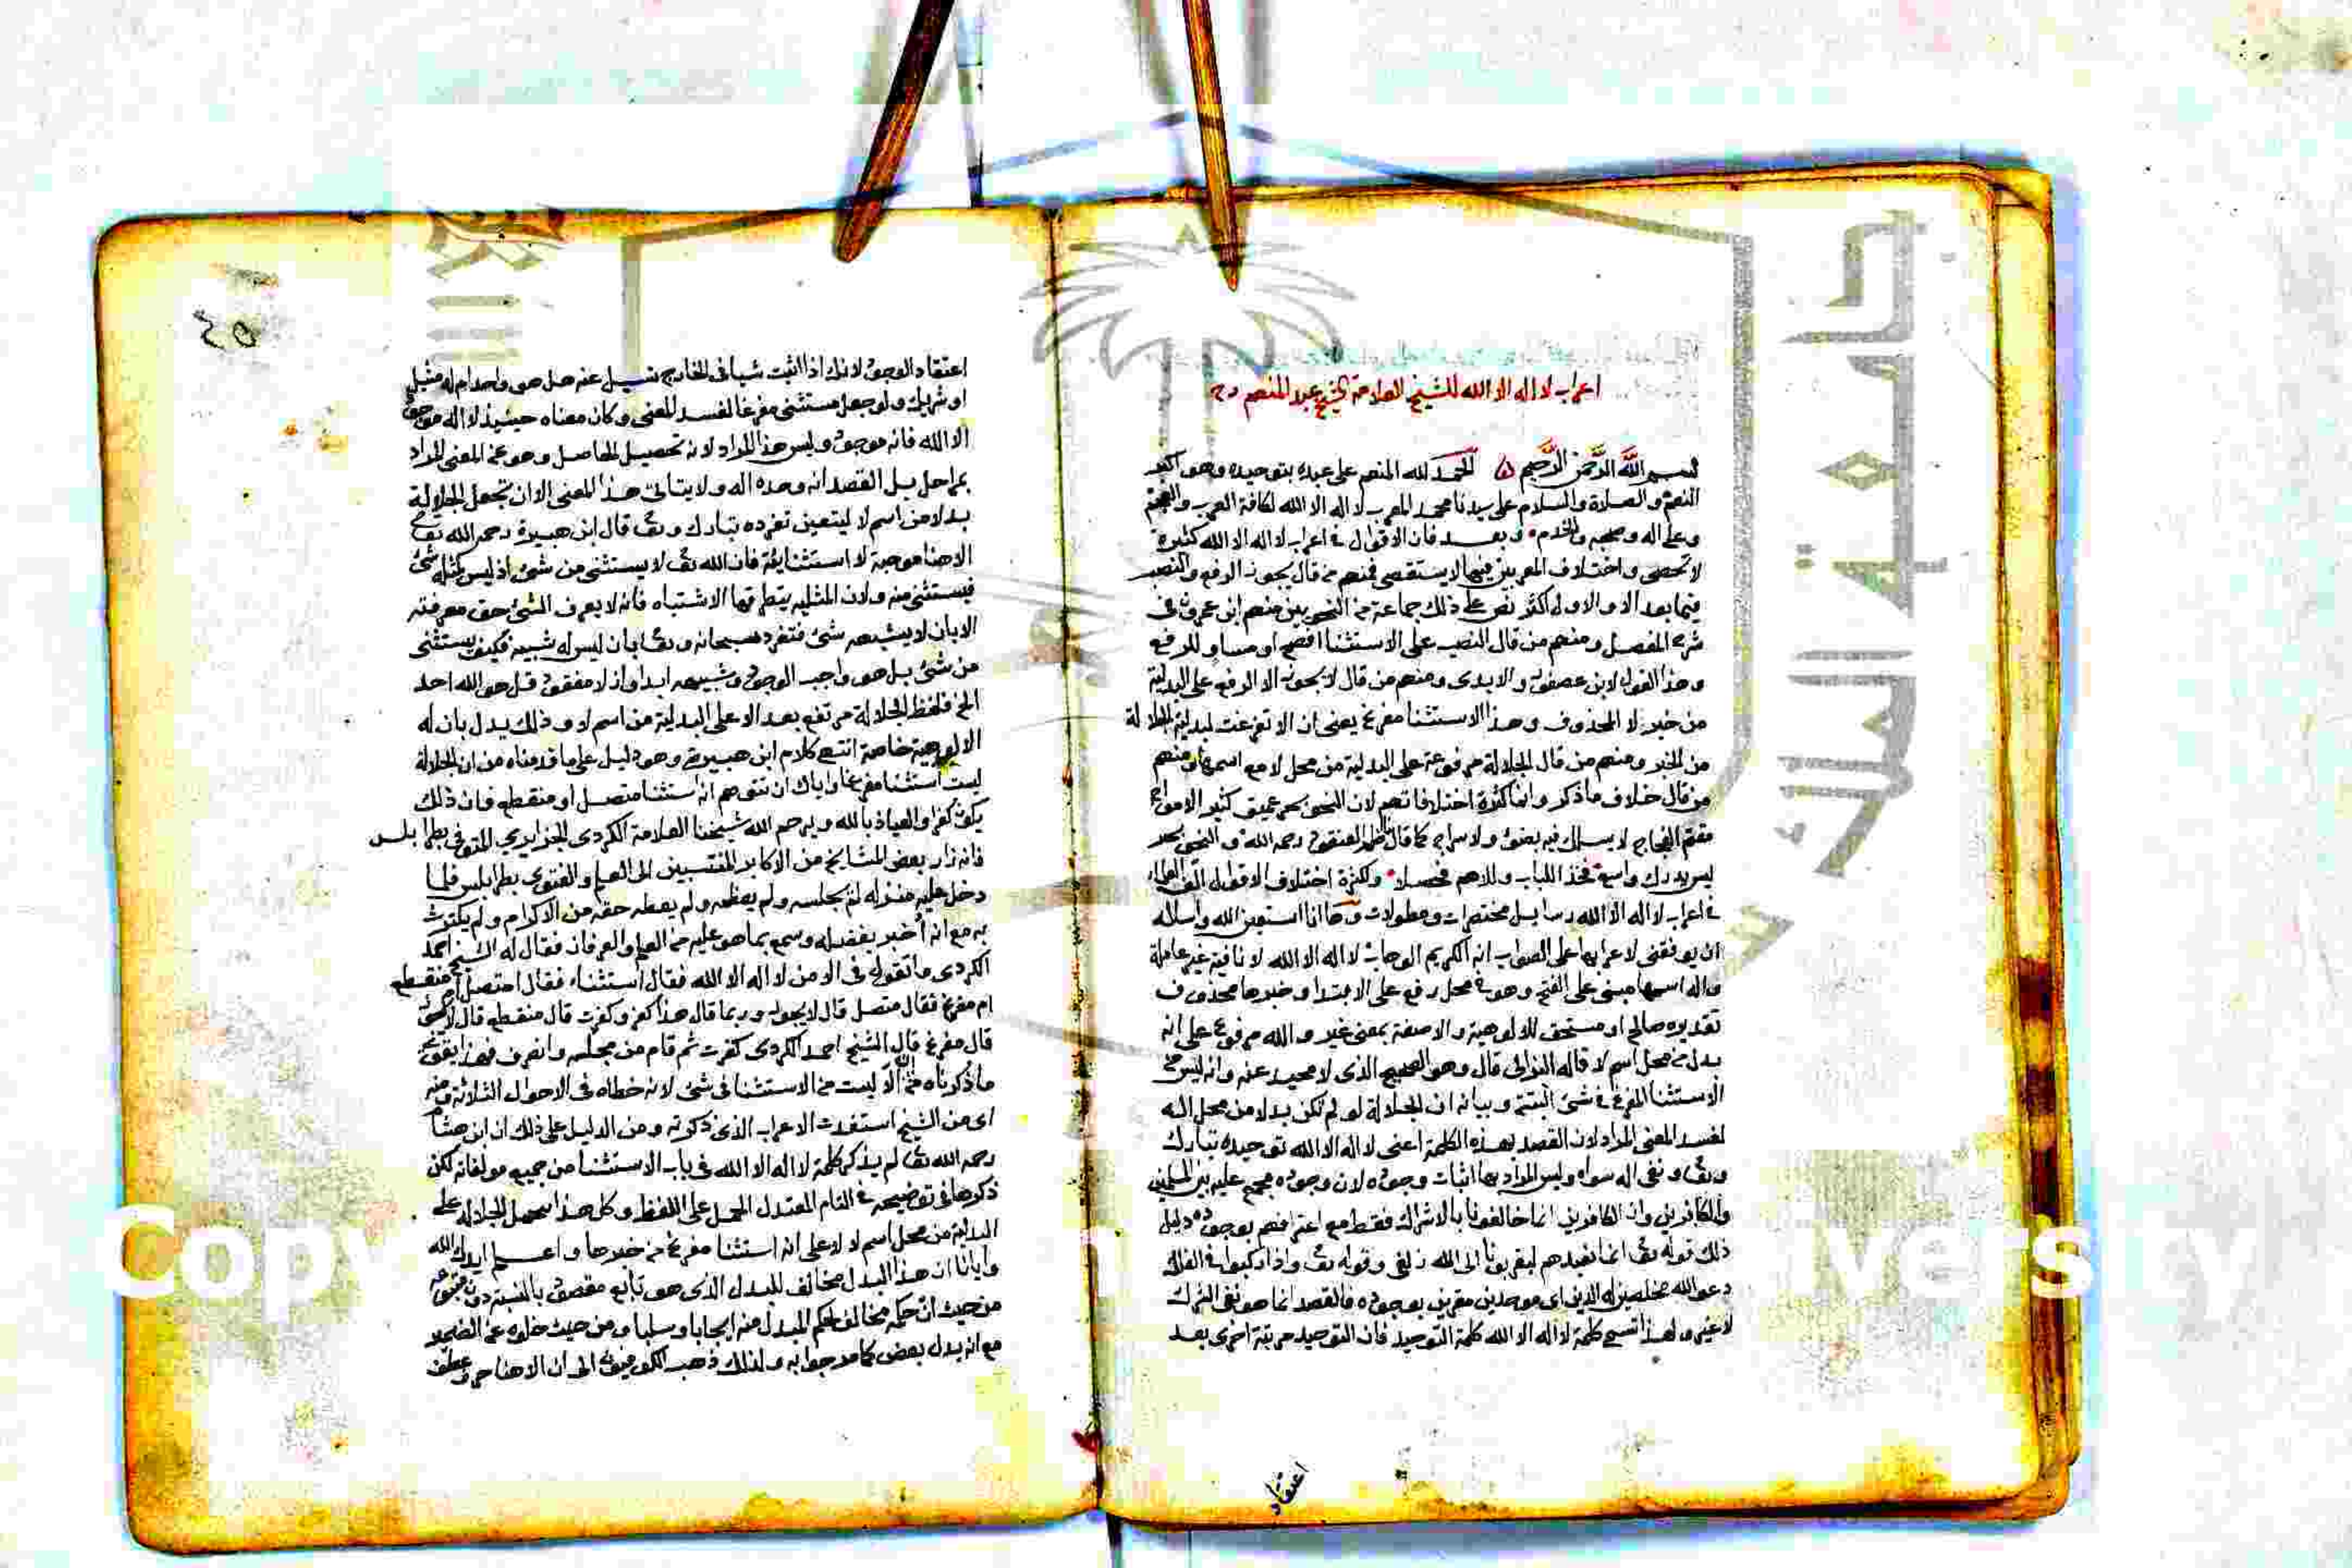 اعراب لا اله الا الله للشيخ العلامة الشيخ عبد المنعم رح
بسم الله الرحمن الرحيم الحمد لله المنعم على عبده بتوحيده وهو اكبر
النعم والصلاة والسلام على سيدنا محمد المعرب لا اله الا الله لكافة العرب والعجم
وعلى اله وصحبه والخدم وبعد فان الاقوال في اعراب لا اله الا الله كثيرة
لا تحصى واختلاف المعربين فيها لا يستقصى فمنهم من قال يجوز الرفع والنصب
فيما بعد الا والاول اكثر نص على ذلك جماعة من النحويين منهم ابن عمرون في
شرح المفصل ومنهم من قال النصب على الاستثنا افصح او مساو للرفع
وهذا القول لابن عصفور والابدى ومنهم من قال لا يجوز الا الرفع على البدلية
من خبر لا المحذوف وهذا الاستثنا مفرغ يعنى ان الا تفرغت لبدلية الجلالة
من الخبر ومنهم من قال الجلالة مرفوعة على البدلية من محل لا مع اسمها ومنهم
من قال خلاف ما ذكر وانما كثرة اختلافاتهم لان النحو بحر عميق كثير الامواج
الفجاج لا يسلك فيه بضوء ولا سراج كما قال رحمه الله والنحو بحر
ليس يدرك واسع فخذ اللباب وللاهم فحصلا ولكثرة اختلاف الاقوال الف العلماء
في اعراب لا اله الا الله رسايل مختصرات ومطولات وها انا استعين الله واسئله
ان يوفقنى لاعرابها على الصواب انه الكريم الوهاب لا اله الا الله لا نافية غير عاملة
واله اسمها مبنى على الفتح وهو في محل رفع على الابتدا وخبرها محذوف
تقديره صالح او مستحق للالوهية والا صفة بمعنى غير والله مرفوع على انه
بدل من محل اسم لا قاله قال وهو الصحيح الذى لا محيد عنه وانه ليس من
الاستثنا المفرغ في شئ البتة وبيانه ان الجلالة لو لم تكن بدلا من محل اله
لفسد المعنى المراد لان القصد بهذه الكلمة اعنى لا اله الا الله توحيده تبارك
وتعا ونفى اله سواه وليس المراد بها اثبات وجوده لان وجوده مجمع عليه بين المسلمين
والكافرين وان الكافرين انما خالفونا بالاشراك فقط مع اعترافهم بوجوده دليل
ذلك قوله تعا انما نعبدهم ليقربونا الى الله زلفى وقوله تعا واذا ركبوا في الفلك
دعوا الله مخلصين له الدين اى موحدين مقرين بوجوده فالقصد انما هو نفى الشرك
لا غير ولهذا تسمى كلمة لا اله الا الله كلمة التوحيد فان التوحيد مرتبة اخرى بعد
اعتقاد
٤٥
اعتقاد الوجود لانك اذا اثبت شيا في الخارج تسيل عنه هل هو واحد ام له مثيل
او شريك ولو جعل مستثنى مفرغا لفسد المعنى وكان معناه حينيذ لا اله موجود
الا الله فانه موجود وليس هذا المراد لانه تحصيل الحاصل وهو عن المعنى المراد
بمراحل بل القصد انه وحده اله ولا يتاتى هذا المعنى الا ان تجعل الجلالة
بدلا من اسم لا ليتعين تفرده تبارك وتعا قال ابن هبيرة رحمه الله تعا
الا هنا موجبة لا استثنايئة فان الله تعا لا يستثنى من شئ اذ ليس كمثله شئ
فيستثنى منه ولان المثلية يتطرقها الاشتباه فانه لا يعرف الشئ حق معرفته
الا بان لا يشبهه شئ فتفرد سبحانه وتعا بان ليس له شبيه فكيف يستثنى
من شئ بل هو واجب الوجود وشبيهه ابدا وازلا مفقود قل هو الله احد
الخ فلفظ الجلالة مرتفع بعد الا على البدلية من اسم لا وذلك يدل بان له
الالوهية خاصة انتهى كلام ابن هبيرة وهو دليل على ما قدمناه من ان الجلالة
ليست استثنا مفرغا واياك ان تتوهم انه استثنا متصل او منقطع فان ذلك
يكون كفرا والعياذ بالله ويرحم الله شيخنا العلامة الكردى الجزايري المتوفي بطرابلس
فانه زار بعض المشايخ من الاكابر المنتسبين الى العلم والفتوى بطرابلس فلما
دخل عليه منزله لم يجلسه ولم يعظمه ولم يعطه حقه من الاكرام ولم يكترث
به مع انه اخبر بفضله وسمع بما هو عليه من العلم والعرفان فقال له الشيخ احمد
الكردى ما تقول في الا من لا اله الا الله فقال استثناء فقال امتصل ام منقطع
ام مفرغ فقال متصل قال لا يجوز وربما قال هذا كفر وكفرت قال منقطع قال
قال مفرغ قال الشيخ احمد الكردى كفرت ثم قام من مجلسه وانصرف فهذا يقوى
ما ذكرناه من ان الا ليست من الاستثنا في شئ لانه خطاه في الاحوال الثلاثة ومنه
اى من الشيخ استفدت الاعراب الذى ذكرته ومن الدليل على ذلك ان ابن هشام
رحمه الله تعا لم يذكر كلمة لا اله الا الله في باب الاستثنا من جميع مولفاته لكن
ذكرها في توضيحه في المعتدل الحمل على اللفظ وكل هذا الجلالة على
البدلية من محل اسم لا لا على انه استثنا مفرغ من خبرها واعلم ايدك الله
وايانا ان هذا البدل مخالف للبدل الذى هو تابع مقصود بالنسبة دون متبوعه
من حيث ان حكمه مخالف لحكم المبدل منه ايجابا وسلبا ومن حيث خلوه عن الضمير
مع انه بدل بعض كما مر جوابه ولذلك ذهب الكوفيون الى ان الا هنا حرف عطف